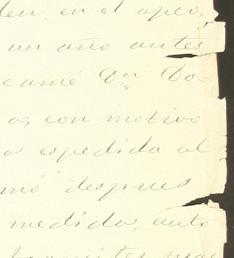 den en el apeo,
un año antes
camé Dn Do-
as, con motivo
a espedida al
mó despues
medida, auto